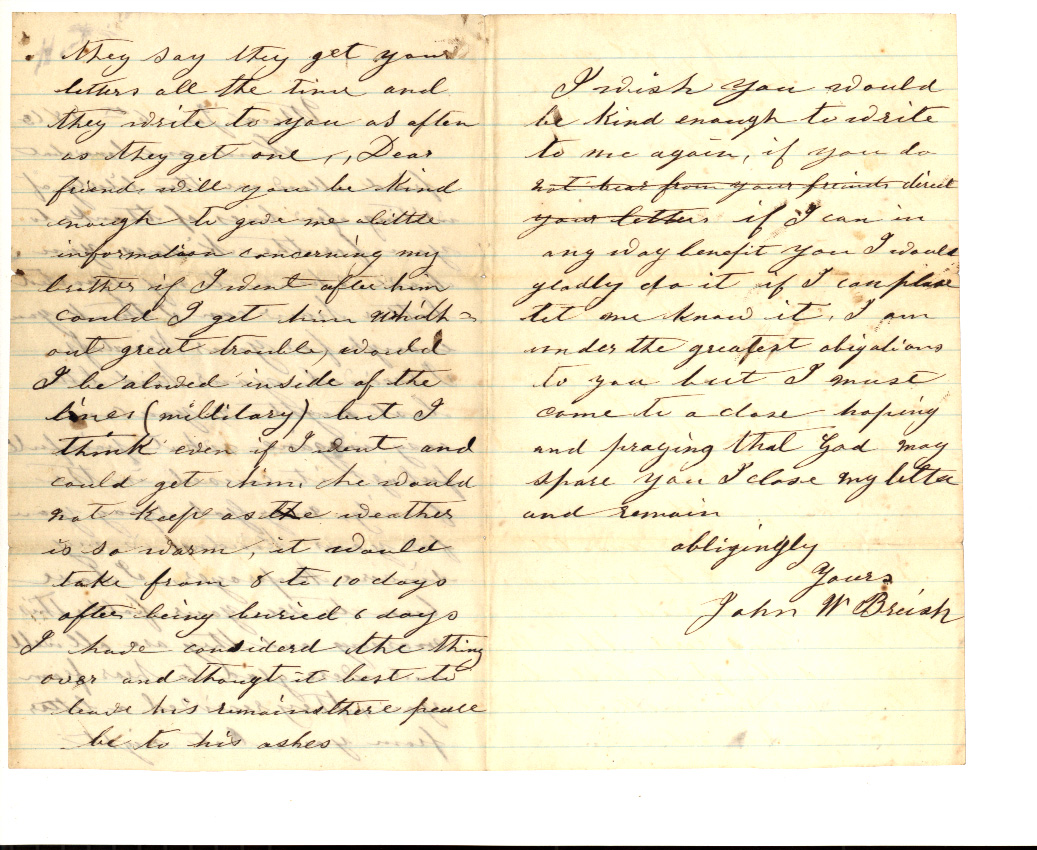 they say they get your
letters all the time and
they write to you as often
as they get one ,, Dear
friend will you be kind
enough to give me alittle
information concerning my
brother if I went after him
could I get him whith=
out great trouble, would
I be alowed inside of the
lines (millitary) but I
think even if I went and
could get him, he would
not keep as the weather
is so warm, it would
take from 8 to 10 days
after being buried 6 days
I have considerd the thing
over and thought it best to
leave his remains there peace
be to his ashes
I wish you would
be kind enough to write
to me again, if you do
not hear from your friends direct
your letters if I can in
any way benefit you I would
gladly do it if I can please
let me know it, I am
under the greatest obigations
to you but I must
come to a close hoping
and praying that God may
spare you I close my letter
and remain
obligingly
Yours
John W Breish